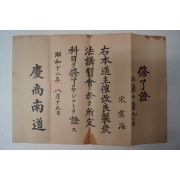 修了證
宋雲海
右本道主催改良製炭
法講習會ニ於テ所定ノ
科目ヲ修了セシコトヲ證ス
昭和十二年八月十三日
慶尚南道